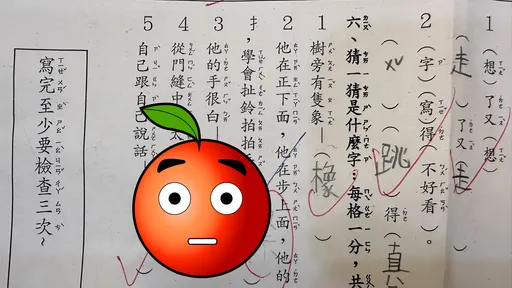 1（想）了又（想）
（走）了又（走）
2（字）（寫）得（不好看）。
（跳）得（直
六、猜一猜是什麼字；每格一分，共
1 樹旁有隻象—（橡）
2 他在正下面，他在步上面，他的
扌，學會扯鈴拍拍
3 他的手很白—
4 從門縫中 太
5 自己跟自己說話
寫完至少要檢查三次~